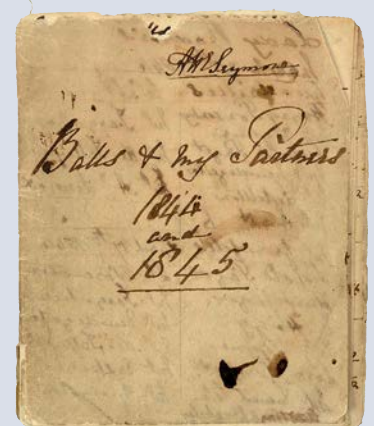 Seymour
Balls & my Partners
1844
and
1845